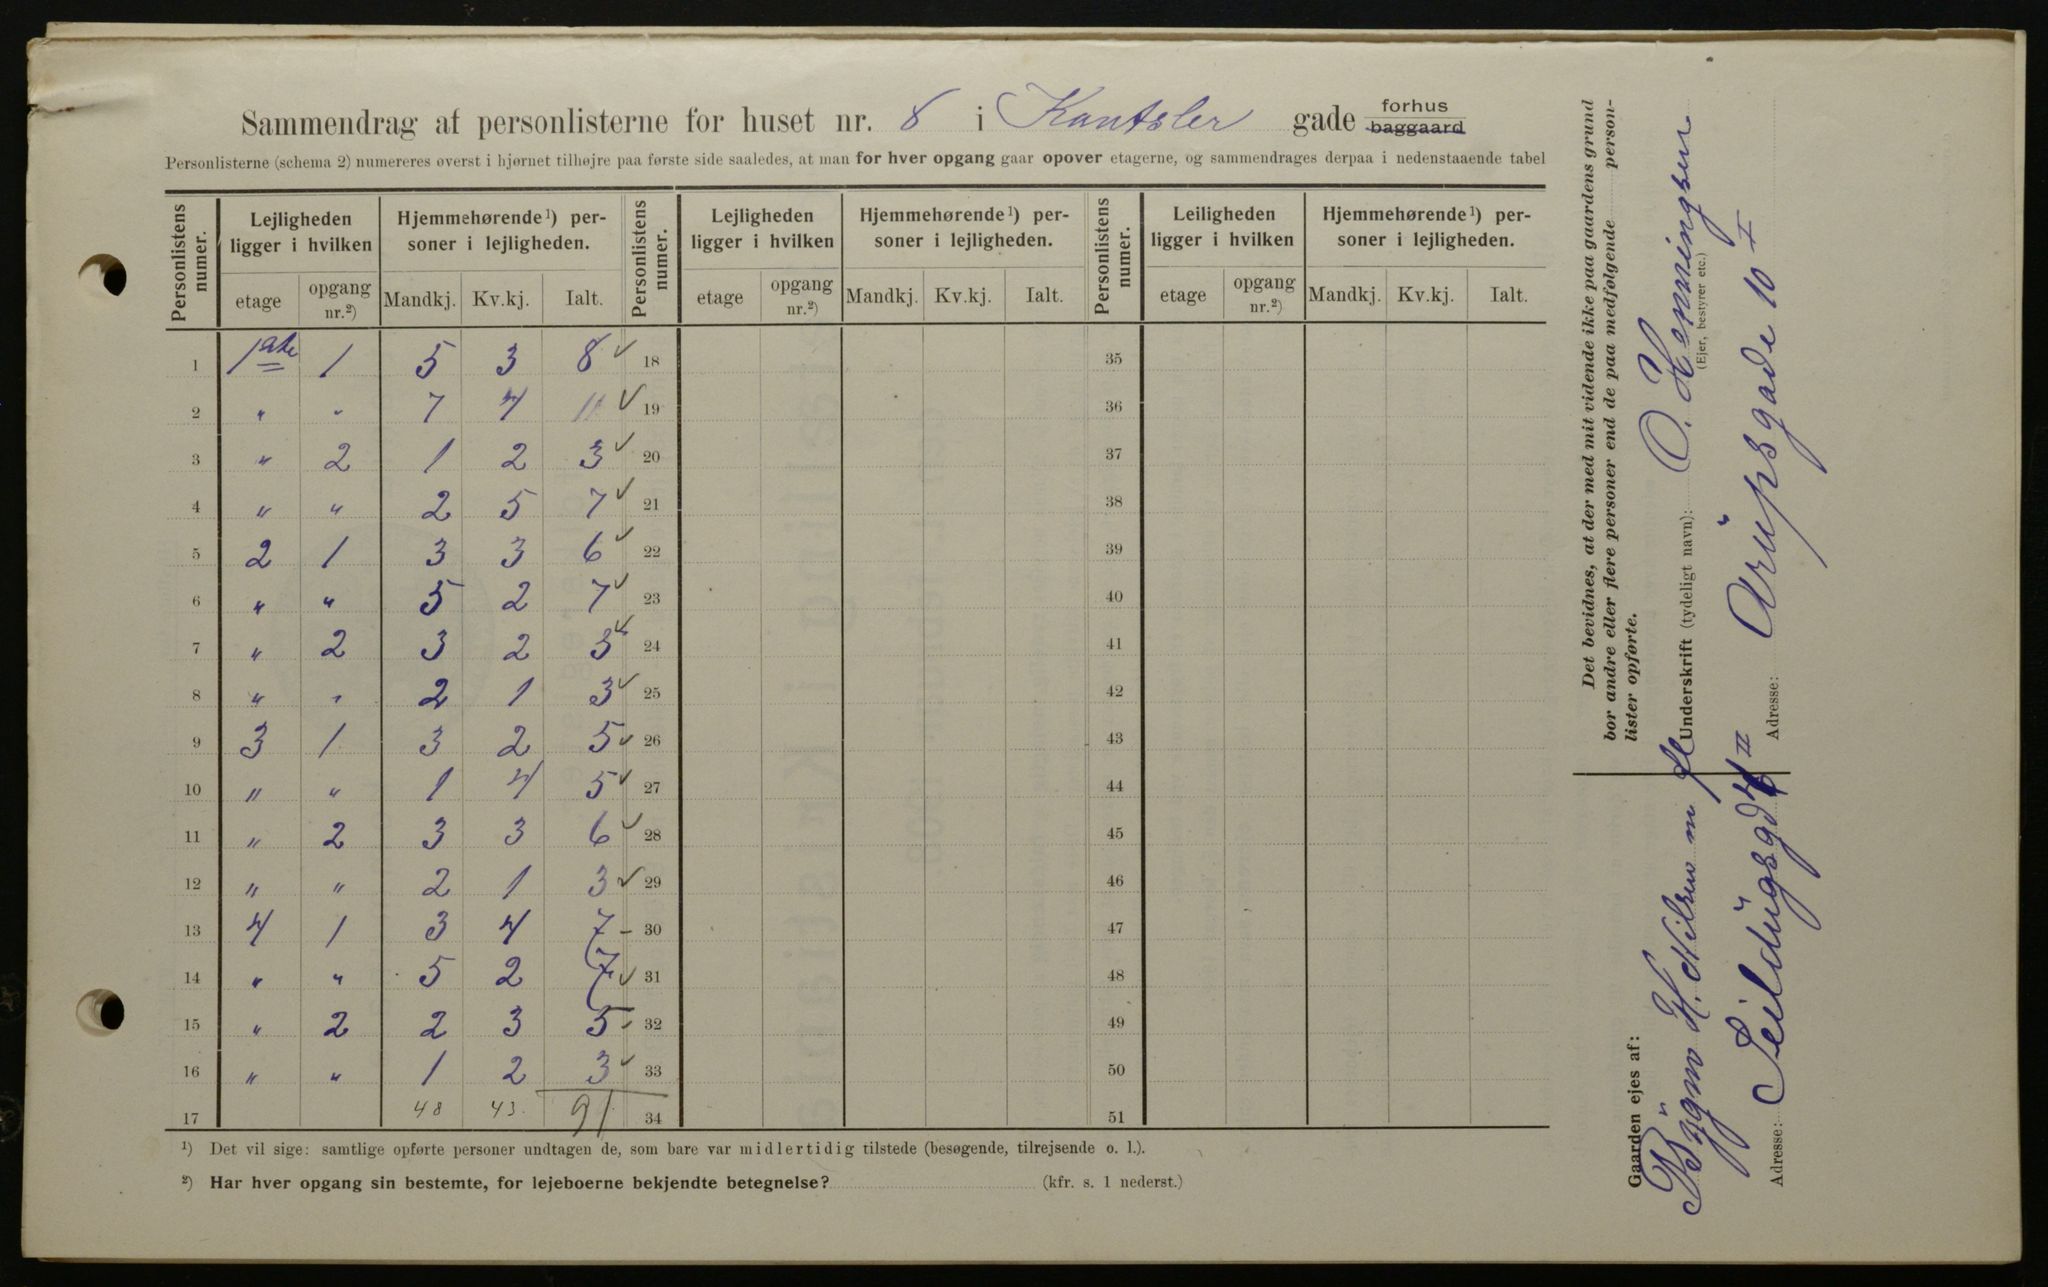 Sammendrag af personlisterne for huset nr. 8 i Kantsler gade forhus baggaard
Personlisterne (schema 2) numereres øverst i hjørnet tilhøjre paa første side saaledes, at man for hver opgang gaar opover etagerne, og sammendrages derpaa i nedenstaaende tabel
Personlistens numer. Lejligheden ligger i hvilken Hjemmehørende¹) personer i lejligheden. Personlistens numer. Lejligheden ligger i hvilken Hjemmehørende¹) personer i lejligheden. Personlistens numer. Leiligheden ligger i hvilken Hjemmehørende¹) personer i lejligheden.
etage opgang nr.²) Mandkj. Kv.kj. Ialt. etage opgang nr.²) Mandkj. Kv.kj. Ialt. etage opgang nr.²) Mandkj. Kv.kj. Ialt.
1 1ste 1 5 3 8 ✓ 18 35
2 " " 7 4 11 ✓ 19 36
3 " 2 1 2 3 ✓ 20 37
4 " " 2 5 7 ✓ 21 38
5 2 1 3 3 6 ✓ 22 39
6 " " 5 2 7 ✓ 23 40
7 " 2 3 2 5 ✓ 24 41
8 " " 2 1 3 ✓ 25 42
9 3 1 3 2 5 ✓ 26 43
10 " " 1 4 5 ✓ 27 44
11 " 2 3 3 6 ✓ 28 45
12 " " 2 1 3 ✓ 29 46
13 4 1 3 4 7 – 30 47
14 " " 5 2 7 ✓ 31 48
15 " 2 2 3 5 – 32 49
16 " " 1 2 3 ✓ 33 50
17 48 43. 91 34 51
¹) Det vil sige: samtlige opførte personer undtagen de, som bare var midlertidig tilstede (besøgende, tilrejsende o. l.).
²) Har hver opgang sin bestemte, for lejeboerne bekjendte betegnelse? (kfr. s. 1 nederst.)
Det bevidnes, at der med mit vidende ikke paa gaardens grund
bor andre eller flere personer end de paa medfølgende person-
lister opførte.
Underskrift (tydeligt navn): O. Henningsen
(Ejer, bestyrer etc.)
Adresse: Arupsgade 10 I
Gaarden ejes af:
Bygm H. Nilsen m fl
Adresse: Seildugsgd 4 II